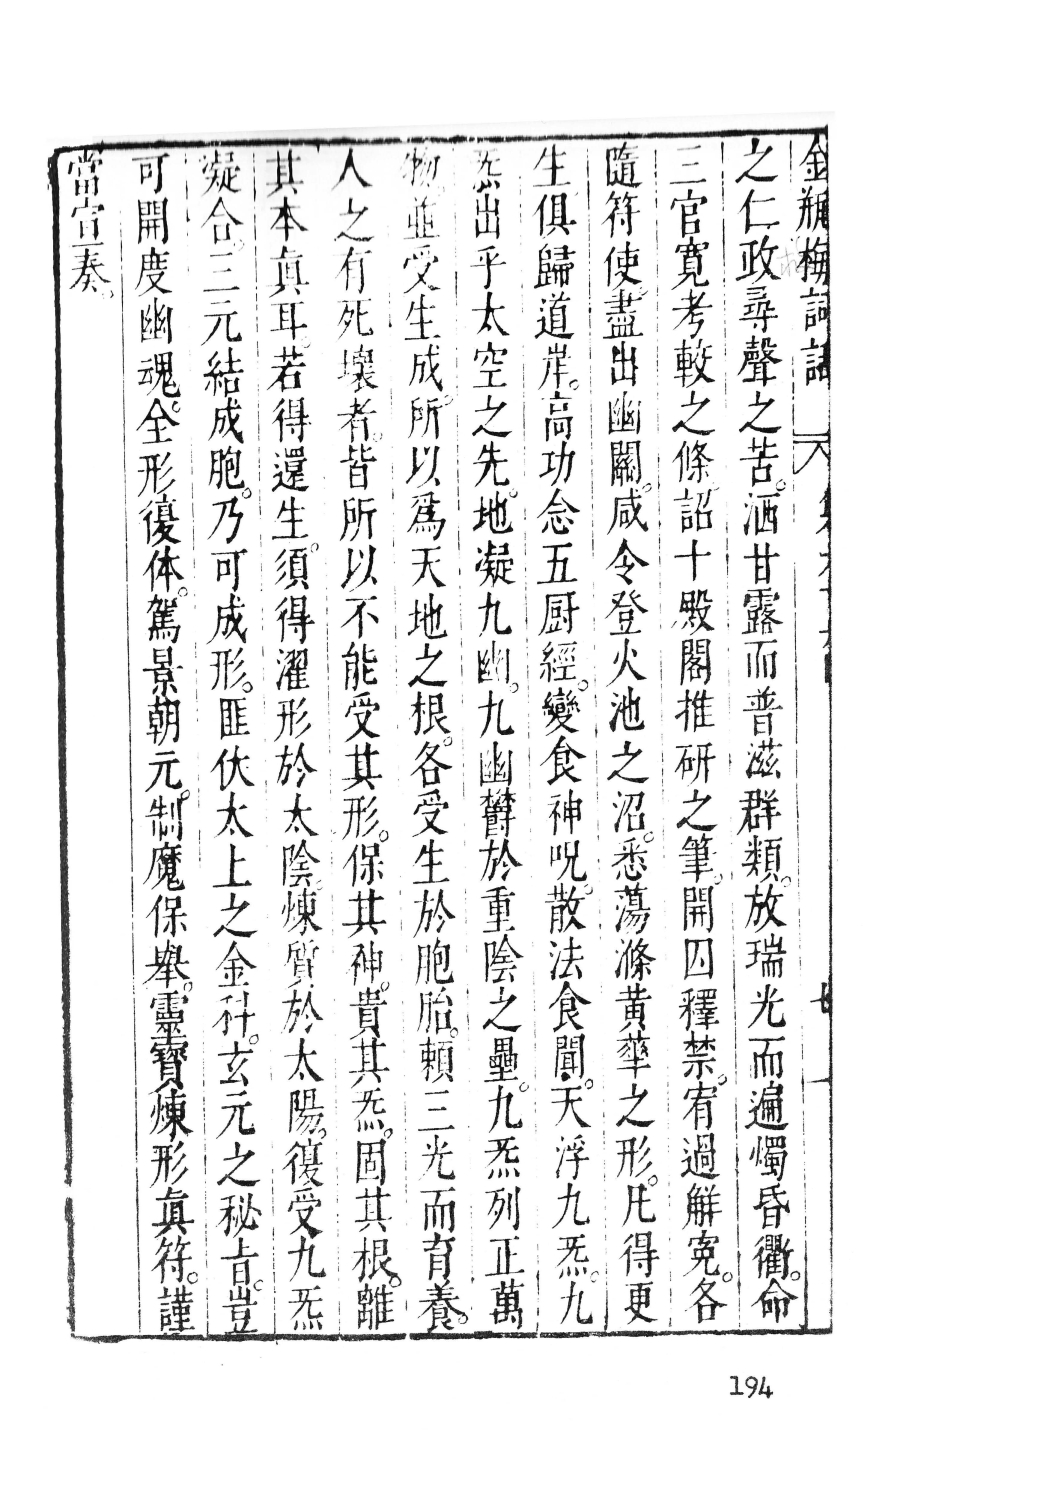 金瓶梅詞話
之仁政尋聲之苦。洒甘露而普滋群類。放瑞光而遍燭昏衢。命
三官寛考較之條詔十殿閣推研之筆。開囚釋禁。宥過解寃。各
隨符使盡出幽關。咸令登火池之沼。悉蕩滌黃華之形。凡得更
生俱歸道岸。高功念五厨經。變食神呪。散法食聞。天浮九炁。九
炁出乎太空之先。地凝九幽。九幽欝於重陰之壘。九炁列正萬
物。並受生成。所以爲天地之根。各受生於胞胎。頼三光而育養。
人之有死壞者。皆所以不能受其形。保其神。貴其炁。固其根。離
其本真耳。若得還生。須得濯形於太陰。煉質於太陽。復受九炁
凝合。三元結成胞。乃可成形。匪伏太上之金科。玄元之秘㫖。豈
可開度幽魂。全形復体。駕景朝元。制魔保舉。靈寳煉形真符。謹
當宣奏。
194